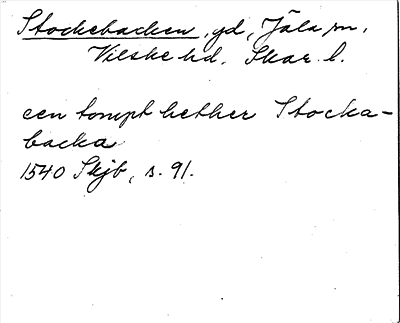 Stockebacken, gd, Jäla sn,
Vilske hd. Skar. l.
een tompt hether Stocka-
backa
1540 Skjb, s. 91.